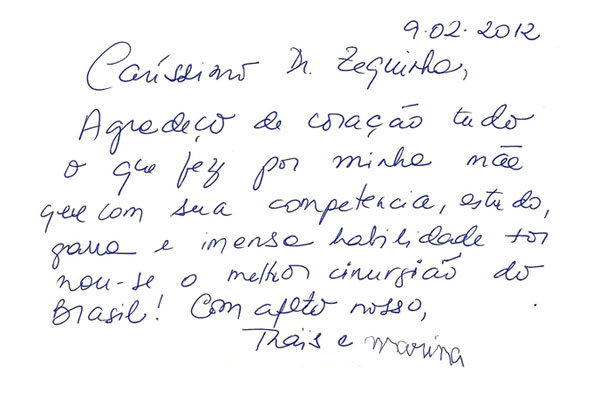 9.02.2012
Caríssimo Dr. Zequinha,
Agradeço de coração tudo
o que fez por minha mãe
que com sua competencia, estudo,
garra e imensa habilidade tor
nou-se o melhor cirurgião do
Brasil! Com afeto nosso,
Thaïs e Marina